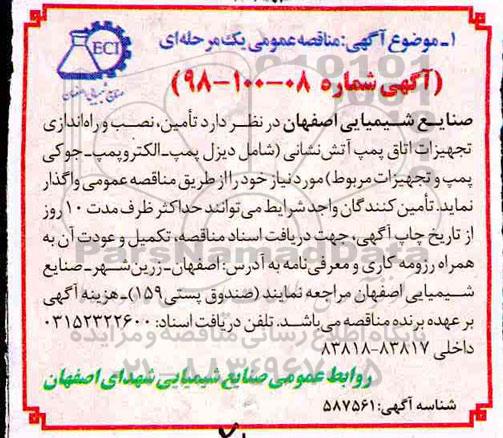 ۱ـ موضوع آگهی: مناقصه عمومی یک مرحله‌ای
ECI
صنایع شیمیایی اصفهان
(آگهی شماره ۰۸-۱۰۰-۹۸)
صنایع شیمیایی اصفهان در نظر دارد تأمین، نصب و راه‌اندازی
تجهیزات اتاق پمپ آتش‌نشانی (شامل دیزل پمپ-الکتروپمپ-جوکی
پمپ و تجهیزات مربوط) مورد نیاز خود را از طریق مناقصه عمومی واگذار
نماید. تأمین کنندگان واجد شرایط می‌توانند حداکثر ظرف مدت ۱۰ روز
از تاریخ چاپ آگهی، جهت دریافت اسناد مناقصه، تکمیل و عودت آن به
همراه رزومه کاری و معرفی‌نامه به آدرس: اصفهان-زرین‌شهر-صنایع
شیمیایی اصفهان مراجعه نمایند (صندوق پستی ۱۵۹)-هزینه آگهی
بر عهده برنده مناقصه می‌باشد. تلفن دریافت اسناد: ۰۳۱۵۲۳۲۲۶۰۰
داخلی ۸۳۸۱۷-۸۳۸۱۸
روابط عمومی صنایع شیمیایی شهدای اصفهان
شناسه آگهی: ۵۸۷۵۶۱
ParsNamadData
پایگاه اطلاع رسانی مناقصه و مزایده
۰۲۱-۸۸۳۴۹۶۷۰-۵